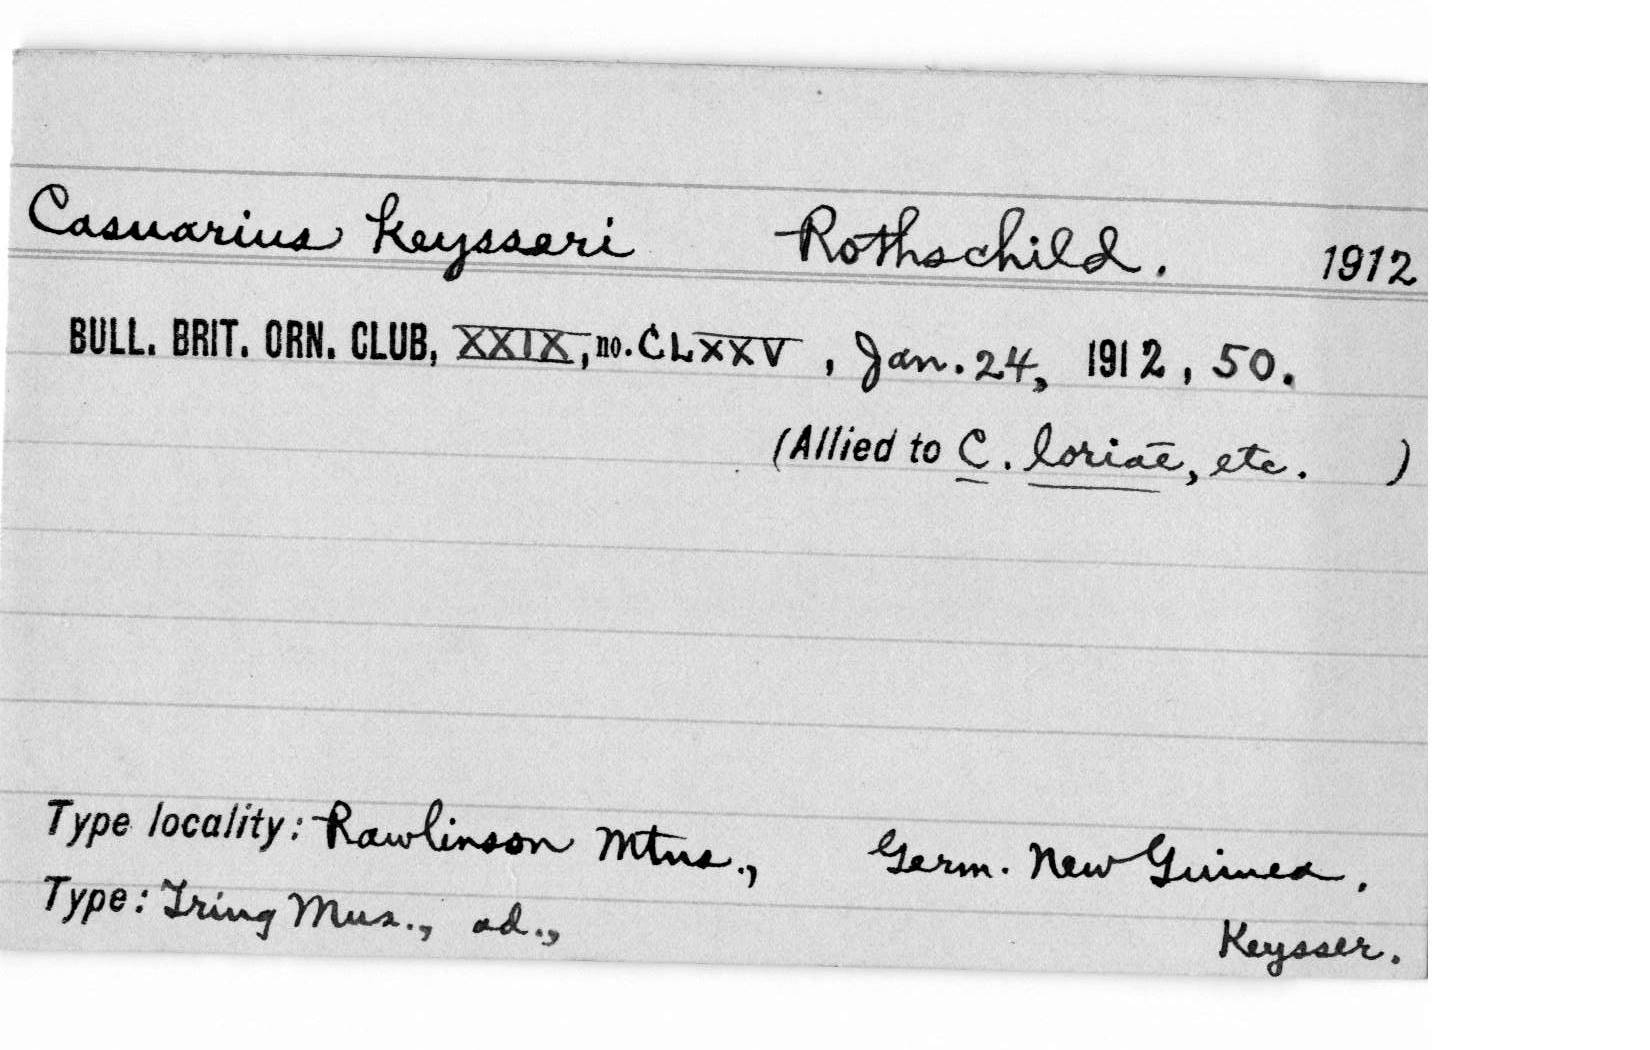 Casuarius keysseri Rothschild. 1912
BULL. BRIT. ORN. CLUB, XXIX, no. CLXXV, Jan. 24, 1912, 50.
(Allied to C. loriae, etc. )
Type locality: Rawlinson Mtns., Germ. New Guinea.
Type: Tring Mus., ad., Keysser.